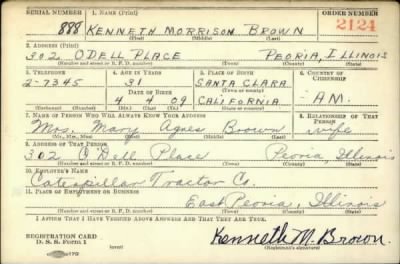 SERIAL NUMBER 1. NAME (Print) ORDER NUMBER
888 KENNETH MORRISON BROWN 2124
(First) (Middle) (Last)
2. ADDRESS (Print)
302 ODELL PLACE PEORIA, ILLINOIS
(Number and street or R. F. D. number) (Town) (County) (State)
3. TELEPHONE 4. AGE IN YEARS 5. PLACE OF BIRTH 6. COUNTRY OF CITIZENSHIP
2-7345 31 SANTA CLARA
DATE OF BIRTH (Town or county)
4 4 09 CALIFORNIA AM.
(Exchange) (Number) (Mo.) (Day) (Yr.) (State or country)
7. NAME OF PERSON WHO WILL ALWAYS KNOW YOUR ADDRESS 8. RELATIONSHIP OF THAT PERSON
Mrs. Mary Agnes Brown wife
(Mr., Mrs., Miss) (First) (Middle) (Last)
9. ADDRESS OF THAT PERSON
302 O'Dell Place Peoria, Illinois
(Number and street or R. F. D. number) (Town) (County) (State)
10. EMPLOYER'S NAME
Caterpillar Tractor Co.
11. PLACE OF EMPLOYMENT OR BUSINESS
East Peoria, Illinois
(Number and street or R. F. D. number) (Town) (County) (State)
I AFFIRM THAT I HAVE VERIFIED ABOVE ANSWERS AND THAT THEY ARE TRUE.
REGISTRATION CARD
D. S. S. Form 1 (over) Kenneth M. Brown.
(Registrant's signature)